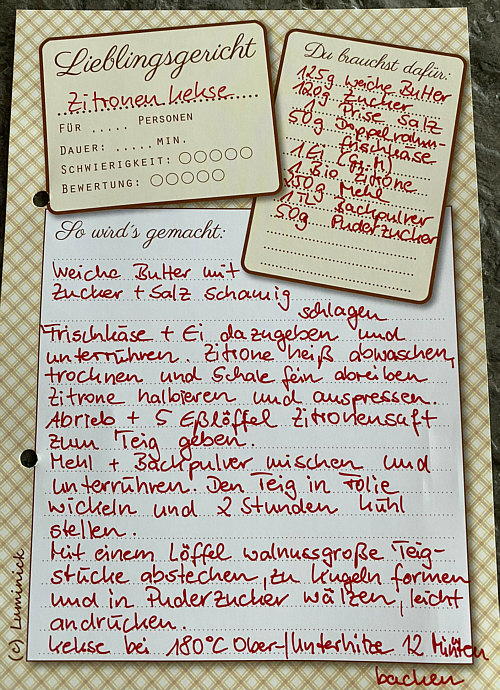 Lieblingsgericht
Zitronenkekse
FÜR ..... PERSONEN
DAUER: ..... MIN.
SCHWIERIGKEIT: ○○○○○
BEWERTUNG: ○○○○○
Du brauchst dafür:
125g weiche Butter
120g Zucker
1 Prise Salz
50g Doppelrahm-
frischkäse
1 Ei (Gr. M)
1 Bio Zitrone
250g Mehl
1 TL Backpulver
50g Puderzucker
So wird's gemacht:
Weiche Butter mit
Zucker + Salz schaumig
schlagen
Frischkäse + Ei dazugeben und
unterrühren. Zitrone heiß abwaschen,
trocknen und Schale fein abreiben
Zitrone halbieren und auspressen.
Abrieb + 5 Eßlöffel Zitronensaft
zum Teig geben.
Mehl + Backpulver mischen und
unterrühren. Den Teig in Folie
wickeln und 2 Stunden kühl
stellen.
Mit einem Löffel walnussgroße Teig-
stücke abstechen, zu Kugeln formen
und in Puderzucker wälzen, leicht
andrücken.
Kekse bei 180°C Ober-/Unterhitze 12 Minuten
backen
(c) Luminick